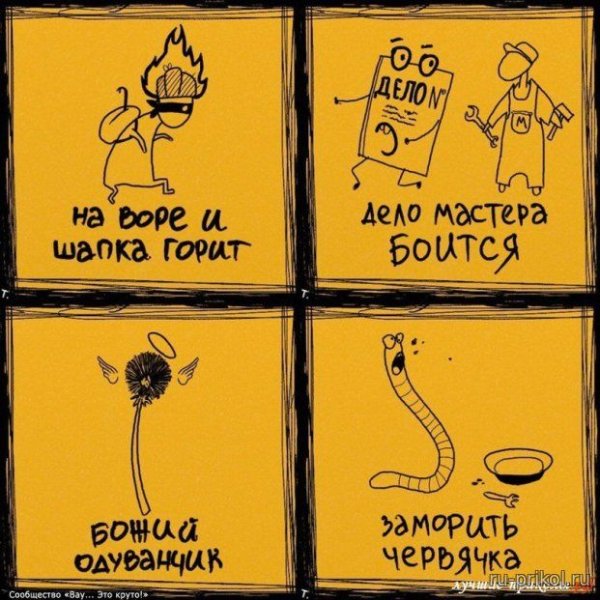 на воре и
шапка горит
ДЕЛО №
М
дело мастера
боится
Т.
Т.
божий
одуванчик
заморить
червячка
Т.
Т.
Сообщество «Вау... Это круто!»
лучшие приколы
ru-prikol.ru